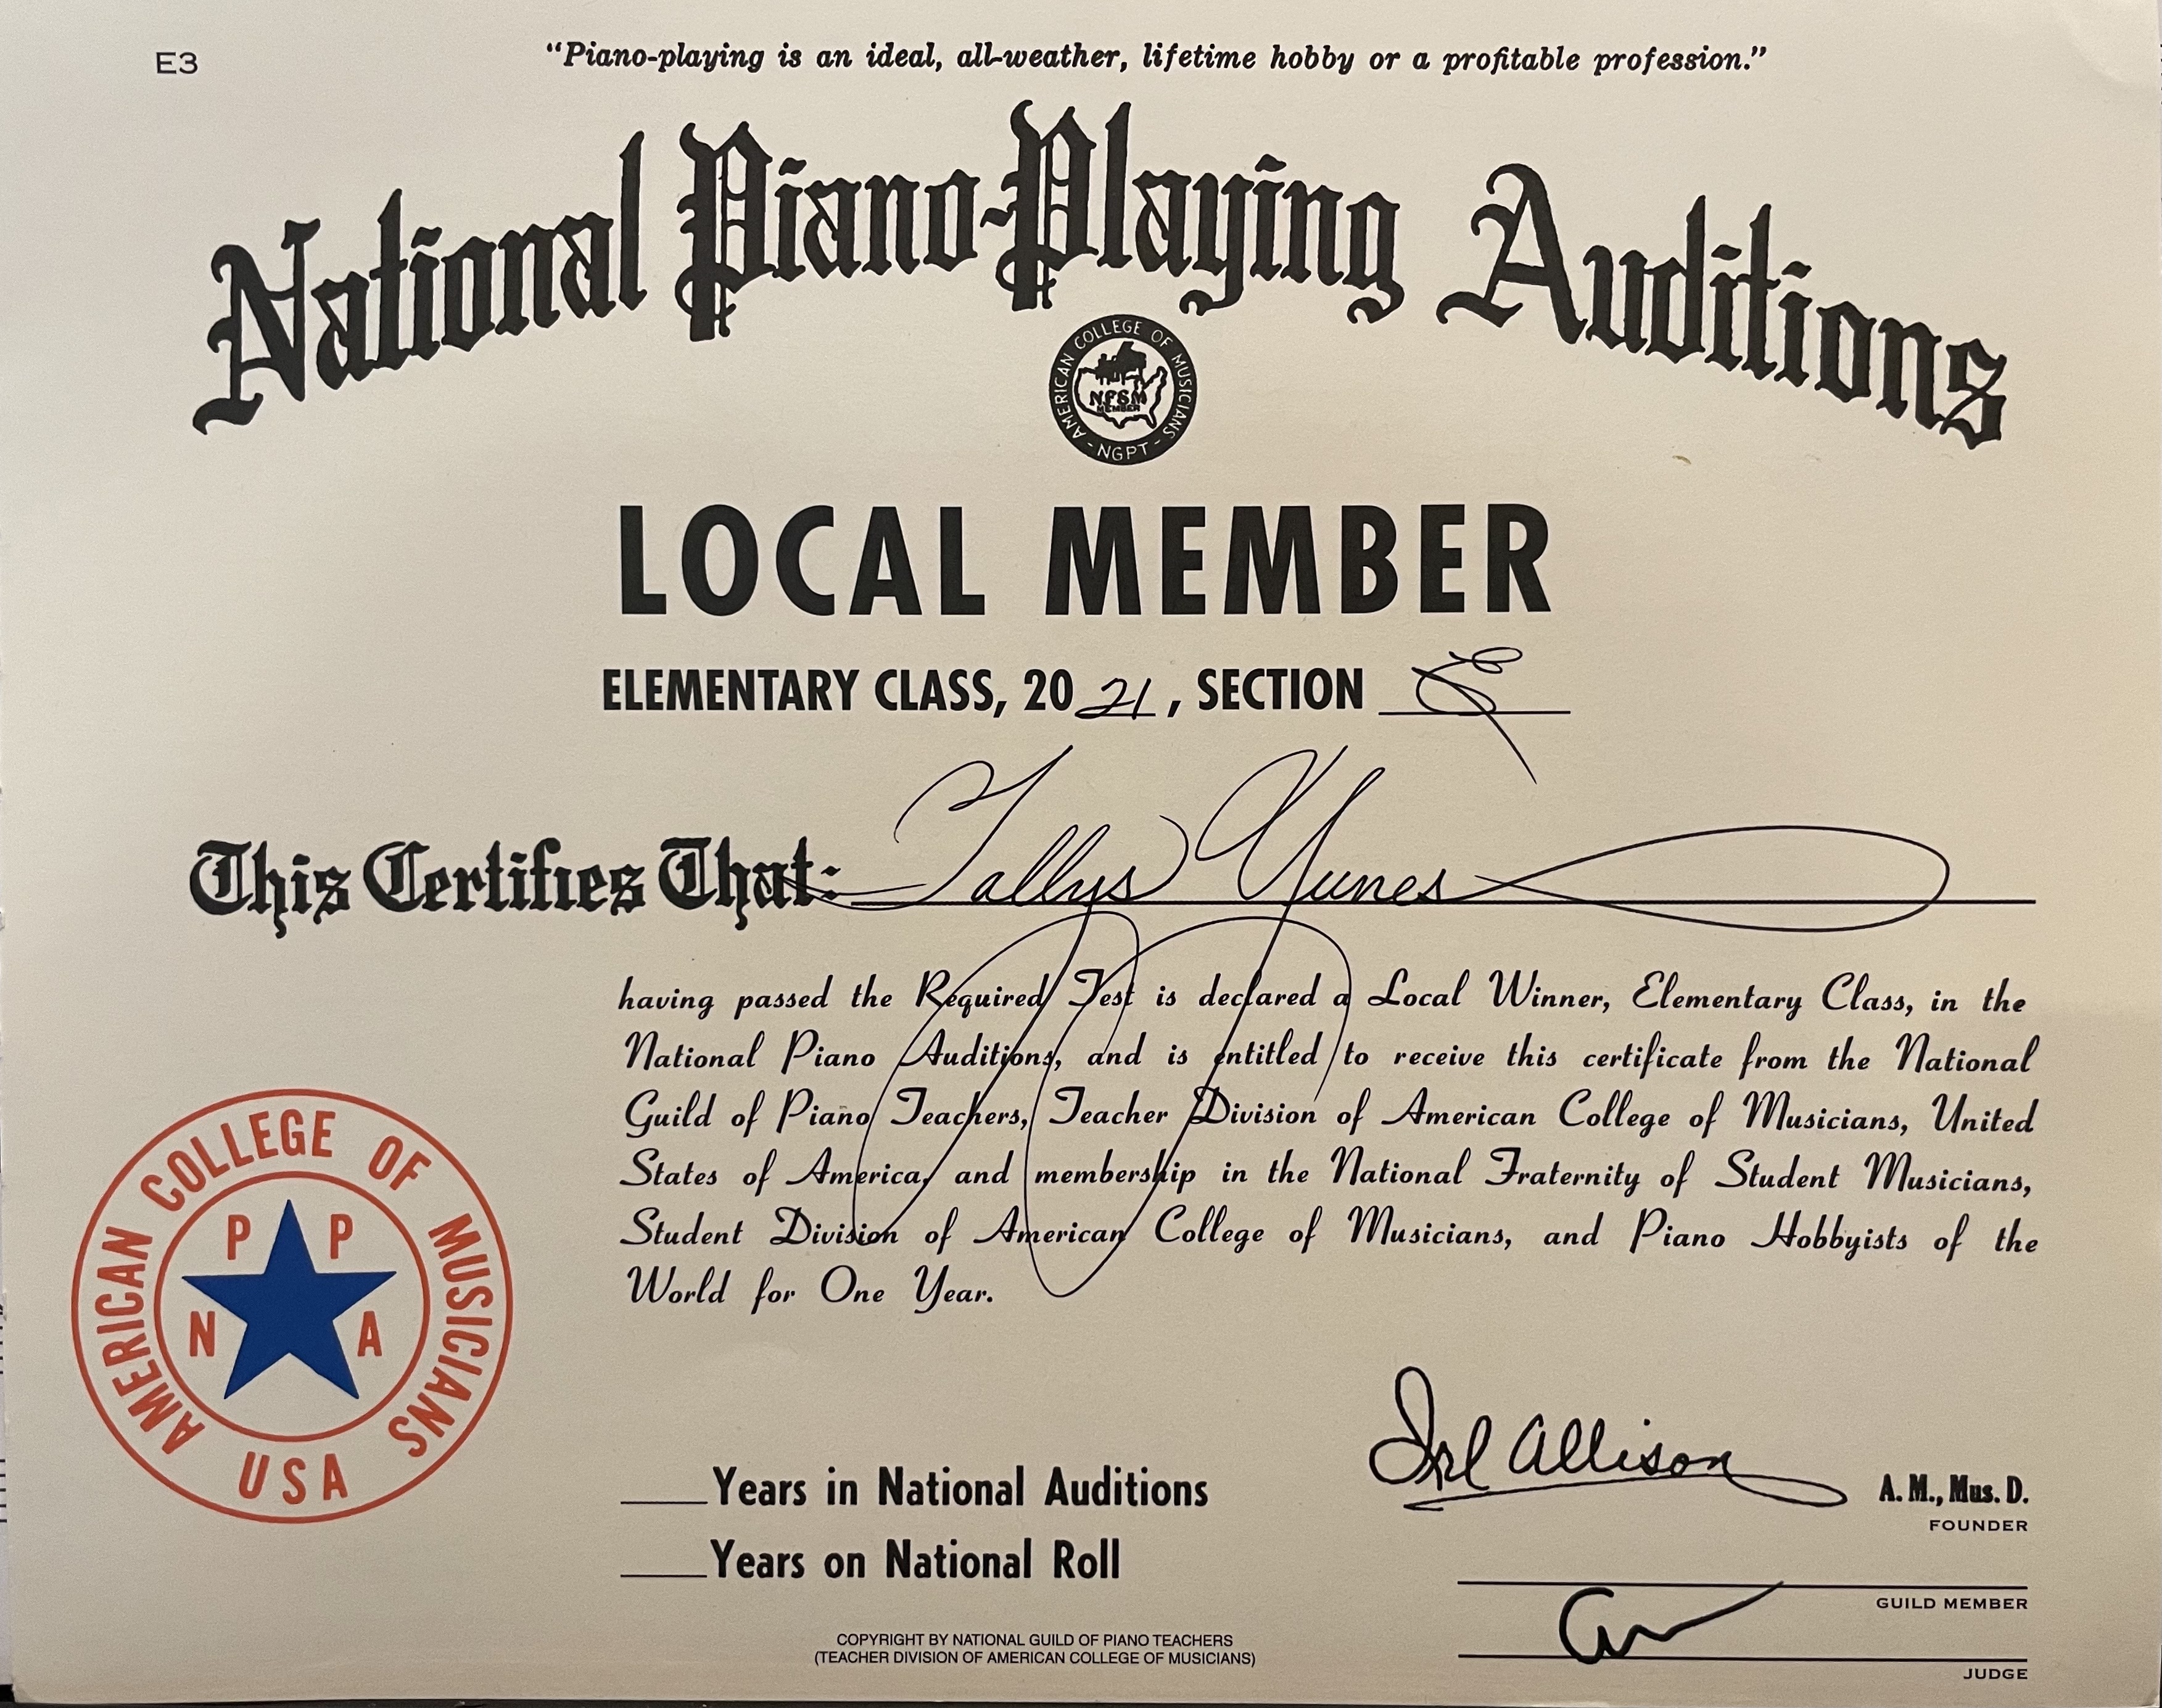 E3
"Piano-playing is an ideal, all-weather, lifetime hobby or a profitable profession."
National Piano-Playing Auditions
AMERICAN COLLEGE OF MUSICIANS - NGPT -
NFSM
MEMBER
LOCAL MEMBER
ELEMENTARY CLASS, 20 21, SECTION E
This Certifies That: Tallys Yunes
having passed the Required Test is declared a Local Winner, Elementary Class, in the
National Piano Auditions, and is entitled to receive this certificate from the National
Guild of Piano Teachers, Teacher Division of American College of Musicians, United
States of America, and membership in the National Fraternity of Student Musicians,
Student Division of American College of Musicians, and Piano Hobbyists of the
World for One Year.
AMERICAN COLLEGE OF MUSICIANS
USA
N P P A
____Years in National Auditions
____Years on National Roll
Irl Allison A. M., Mus. D.
FOUNDER
GUILD MEMBER
JUDGE
COPYRIGHT BY NATIONAL GUILD OF PIANO TEACHERS
(TEACHER DIVISION OF AMERICAN COLLEGE OF MUSICIANS)